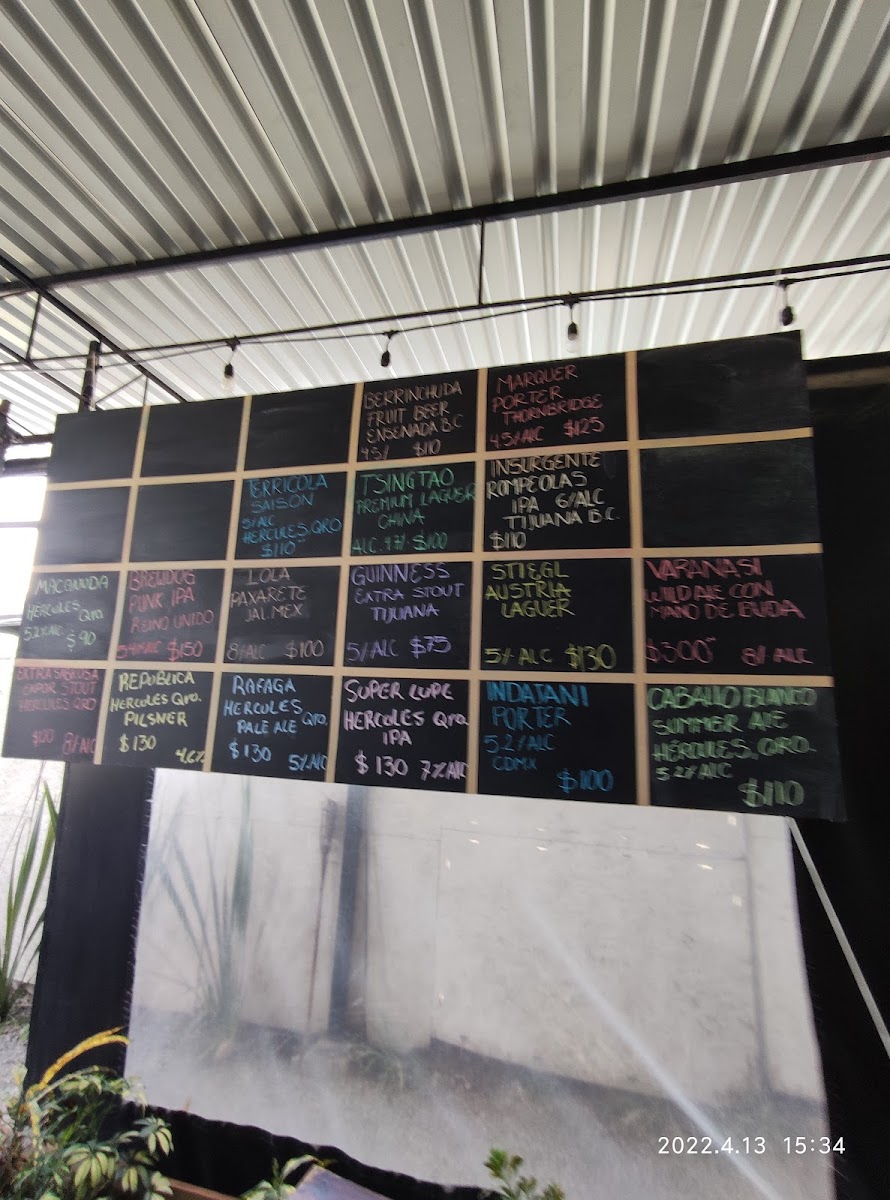 BERRINCHUDA
FRUIT BEER
ENSENADA B.C
4.5% $110
MARQUER
PORTER
THORNBRIDGE
4.5% ALC $125
TERRICOLA
SAISON
5% ALC
HERCULES, QRO
$110
TSINGTAO
PREMIUM LAGUER
CHINA
ALC. 4.7% $100
INSURGENTE
ROMPEOLAS
IPA 6% ALC
TIJUANA B.C.
$110
MACANUDA
HERCULES Qro.
5.2% ALC $90
BREWDOG
PUNK IPA
REINO UNIDO
5.4% ALC $150
LOLA
PAXARETE
JAL. MEX
8% ALC $100
GUINNESS
EXTRA STOUT
TIJUANA
5% ALC $75
STIEGL
AUSTRIA
LAGUER
5% ALC $130
VARANASI
WILD ALE CON
MANO DE BUDA
$300 8% ALC
EXTRA SABROSA
STOUT
HERCULES QRO
8% ALC
REPÚBLICA
HERCULES Qro.
PILSNER
$130
4.6%
RAFAGA
HERCULES Qro,
PALE ALE
$130 5% ALC
SUPER LUPE
HERCULES Qro.
IPA
$130 7% ALC
INDATANI
PORTER
5.2% ALC
CDMX
$100
CABALLO BLANCO
SUMMER ALE
HERCULES, QRO.
5.2% ALC
$110
2022.4.13 15:34